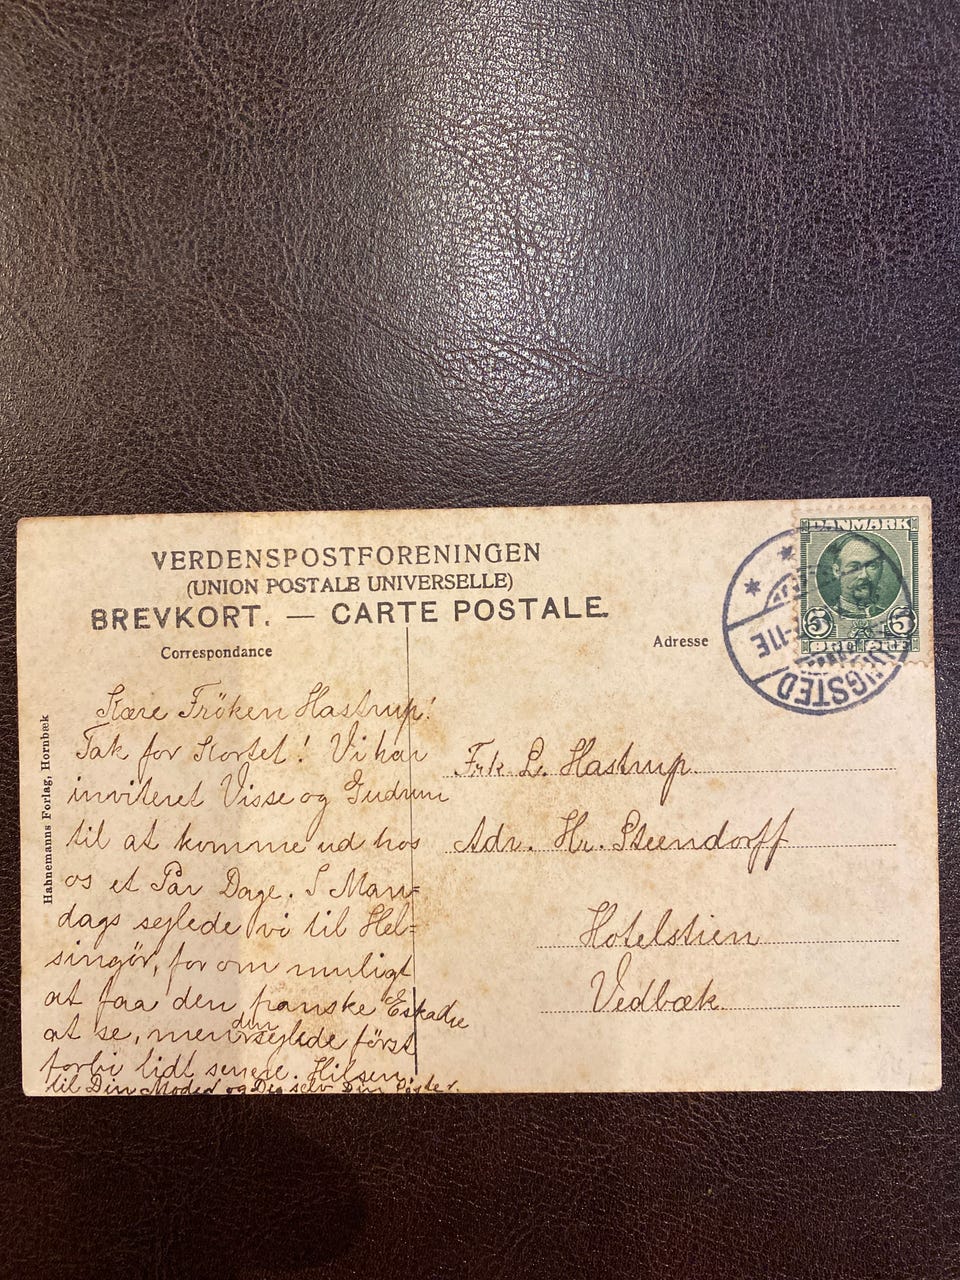 VERDENSPOSTFORENINGEN
(UNION POSTALE UNIVERSELLE)
BREVKORT. — CARTE POSTALE.
Correspondance
Adresse
Hahnemanns Forlag, Hornbæk
Kære Fröken Hastrup!
Tak for Kortet! Vi har
inviteret Visse og Gudrun
til at komme ud hos
os et Par Dage. I Man=
dags sejlede vi til Hel=
singör, for om muligt
at faa den franske Eskadre
at se, men den sejlede först
forbi lidt senere. Hilsen
til Din Moder og Dig selv Din
Frk. L. Hastrup.
Adr. Hr. Steendorff
Hotelstien
Vedbæk.
DANMARK
5 5
NGSTED